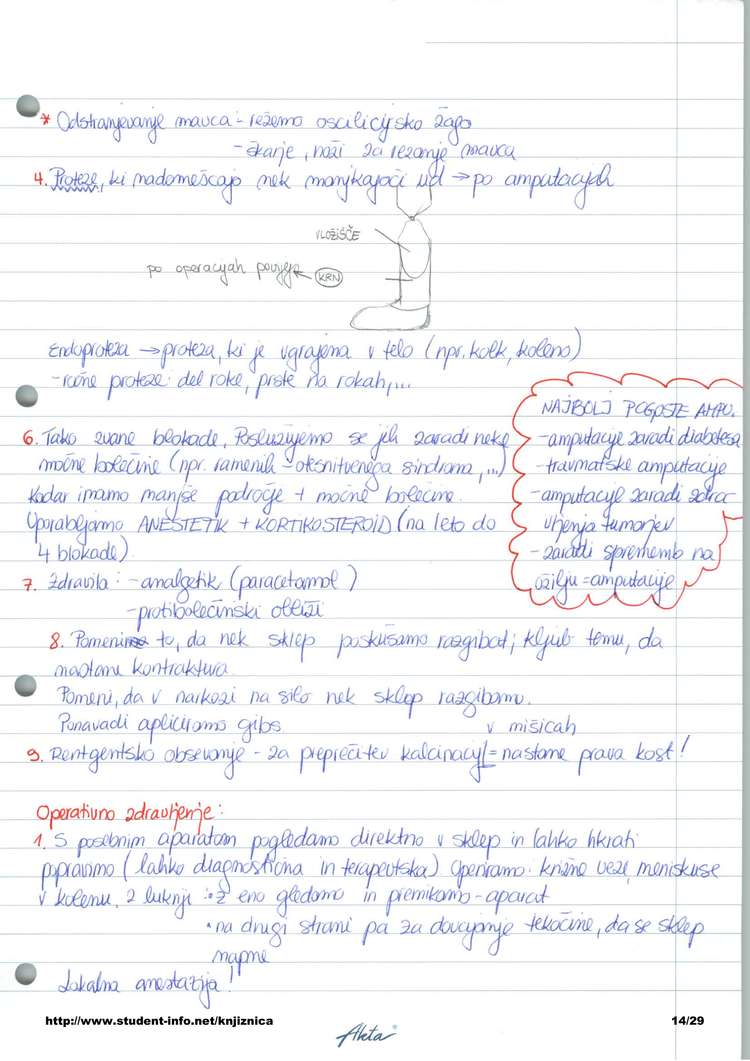 * Odstranjevanje mavca - režemo oscilicijsko žago
- škarje, noži za rezanje mavca
4. Proteze, ki nadomeščajo nek manjkajoči ud → po amputacijah
VLOŽIŠČE
po operacijah povijejo ← KRN
Endoproteza → proteza, ki je vgrajena v telo (npr. kolk, koleno)
- ročne proteze: del roke, prste na rokah,...
NAJBOLJ POGOSTE AMPU.
- amputacije zaradi diabetesa
- travmatske amputacije
- amputacije zaradi zdra-
vljenja tumorjev
- zaradi sprememb na
ožilju = amputacije
6. Tako zvane blokade. Poslužujemo se jih zaradi neke
močne bolečine (npr. ramenih - utesnitvenega sindroma,...)
Kadar imamo manjše področje + močne bolečine.
Uporabljamo ANESTETIK + KORTIKOSTEROID (na leto do
4 blokade)
7. Zdravila: - analgetik (paracetamol)
- protibolečinski obliži
8. Pomeni to, da nek sklep poskušamo razgibat; kljub temu, da
nastane kontraktura.
Pomeni, da v narkozi na silo nek sklep razgibamo.
Ponavadi apliciramo gibs.
v mišicah
9. Rentgentsko obsevanje - za preprečitev kalcinacij = nastane prava kost!
Operativno zdravljenje:
1. S posebnim aparatom pogledamo direktno v sklep in lahko hkrati
popravimo (lahko diagnostična in terapevtska). Operiramo: križne vezi, meniskuse
v kolenu. 2 luknji: • z eno gledamo in premikamo - aparat
• na drugi strani pa za dovajanje tekočine, da se sklep
napne
Lokalna anestezija!
http://www.student-info.net/knjiznica
14/29
Akta